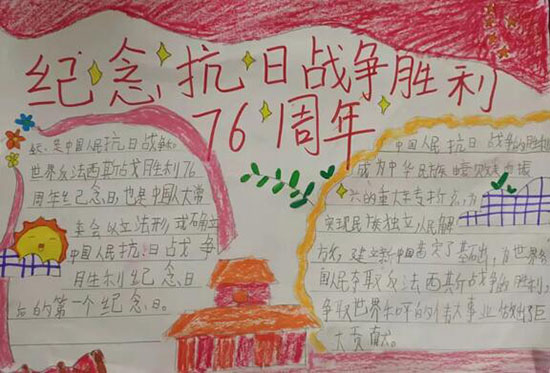 纪念抗日战争胜利
76周年
是中国人民抗日战
世界反法西斯战争胜利76
周年纪念日,也是中国人大常
委会以立法形式确立
中国人民抗日战争
胜利纪念日
后的第一个纪念日。
中国人民抗日战争的胜利
成为中华民族
的重大转折点,为
实现民族独立,人民解
放,建立新中国奠定了基础,为世界各
国人民夺取反法西斯战争的胜利,
争取世界和平的伟大事业做出了巨
大贡献。